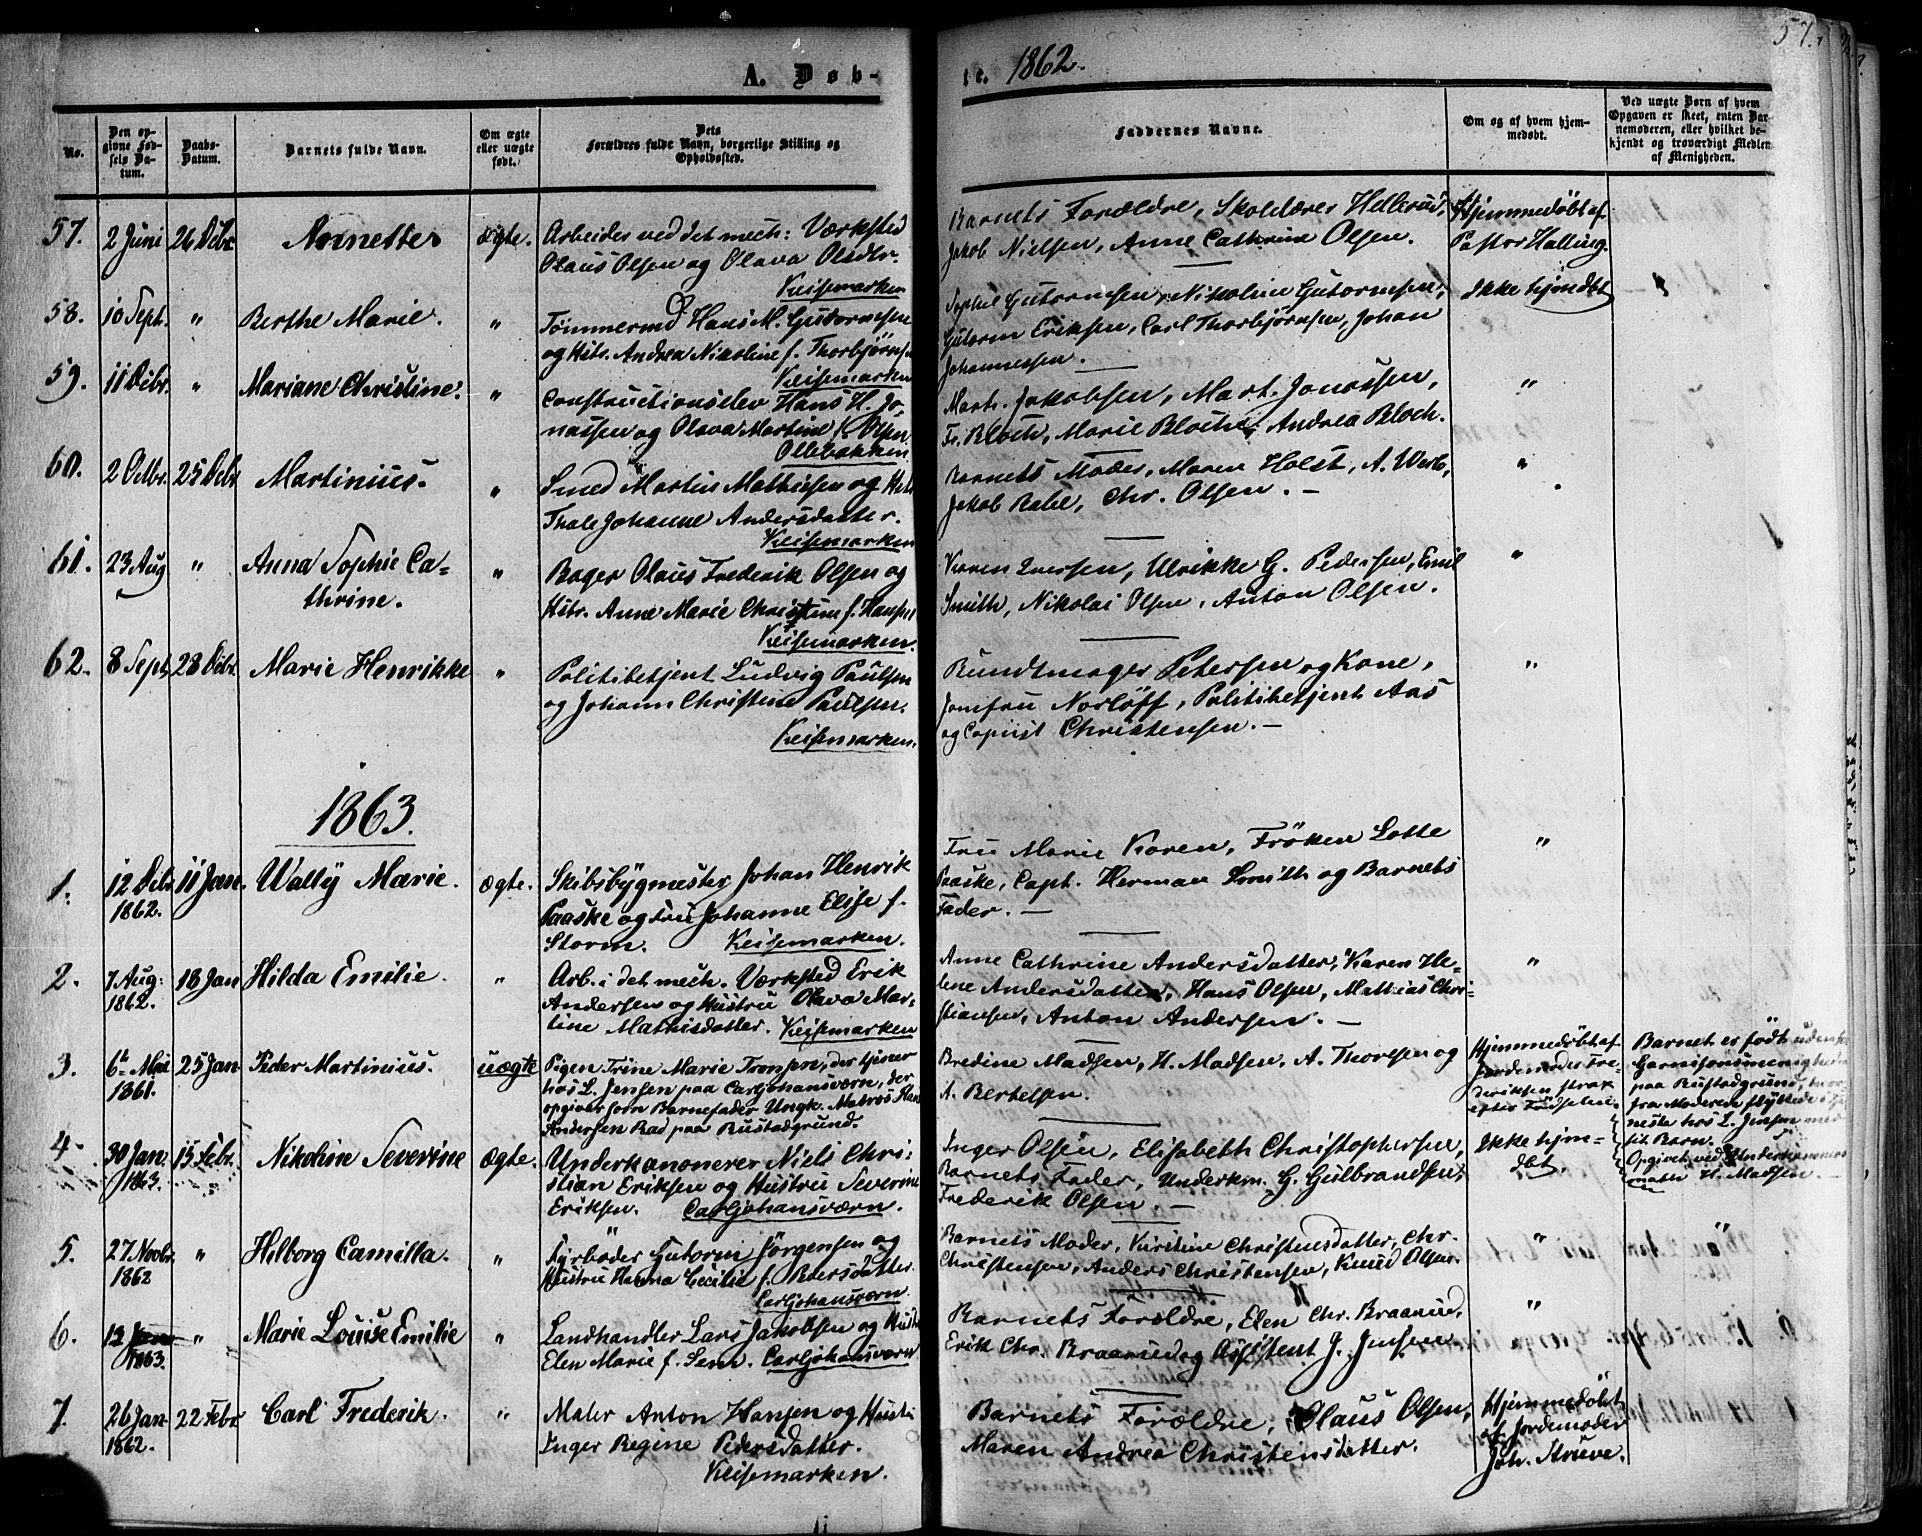 57.
A. Døb-
te. 1862.
No.
Den op-
givne Fød-
sels Da-
tum.
Daabs-
Datum.
Barnets fulde Navn.
Om ægte
eller uægte
født.
Dets
Forældres fulde Navn, borgerlige Stilling og
Opholdssted.
Faddernes Navne.
Om og af hvem hjem-
medøbt.
Ved uægte Børn af hvem
Opgaven er skeet, enten Bar-
nemoderen, eller hvilket be-
kjendt og troværdigt Medlem
af Menigheden.
57. 2 Juni 26 Debr. Annette ægte. Arbeider ved det mech: Værksted
Olaus Olsen og Olava Olsdtr.
Keisemarken
Barnets Forældre, Skolelærer Hellerud,
Jakob Nielsen, Anne Cathrine Olsen.
Hjemmedøbt af
Pastor Halling.
58. 10 Sept. " Berthe Marie. " Tømmermd Hans M. Gutormsen
og Hstr. Andrea Nikoline f. Thorbjørnsen
Keisemarken
Sophie Gutormsen, Nikoline Gutormsen,
Gutorm Eriksen, Carl Thorbjørnsen, Johan
Johannessen.
Ikke hjmdbt
59. 11 Debr. " Mariane Christine. " Constructionselev Hans H. Jo-
nassen og Olava Martine f. Olsen
Ollebakken
Marts. Jakobsen, Mart. Jonassen,
Fr. Bloch, Marie Bloch, Andrea Bloch.
"
60. 2 Octbr. 25 Debr Martinius. " Smed Martin Mathisen og Hstr
Thale Johanne Andersdatter.
Keisemarken
Barnets Moder, Maren Holst, A. Werb,
Jakob Rabe, Chr. Olsen. —
"
61. 23 Aug " Anna Sophie Ca-
thrine. " Bager Olaus Frederik Olsen og
Hstr. Anne Marie Christine f. Hansen
Keisemarken.
Karen Iversen, Ulrikke G. Pedersen, Emil
Smith, Nikolai Olsen, Anton Olsen.
"
62. 8 Sept. 28 Debr. Marie Henrikke " Politibetjent Ludvig Paulsen
og Johann Christine Paulsen.
Keisemarken.
Bundtmager Petersen og Kone,
Jomfru Norløff, Politibetjent Aas
og Copiist Christensen. —
"
1863.
1. 12 Debr
1862. 11 Jan. Wally Marie. ægte. Skibsbygmester Johan Henrik
Paaske og Fru Johanne Elise f.
Storm. Keisemarken.
Fru Marie Koren, Frøken Lotte
Paaske, Capt. Herman Smith og Barnets
Fader. —
"
2. 7 Aug:
1862. 18 Jan Hilda Emilie. " Arb. i det mech. Værksted Erik
Andersen og Hustru Olava Mar-
tine Mathisdatter. Keisemarken
Anne Cathrine Andersdatter, Karen He-
lene Andersdatter, Hans Olsen, Mathias Chri-
stiansen, Anton Andersen. —
"
3. 6te Mai
1861. 25 Jan Peder Martinius. uægte Pigen Trine Marie Tronsen, der tjener
hos L. Jensen paa Carljohansværn, der
opgiver som Barnefader Ungk. Matros Hans
Andersen Bad paa Rustadgrund.
Bredine Madsen, H. Madsen, A. Thorsen og
A. Bertelsen.
Hjemmedøbt af
Jordemoder Fre-
deriksen strax
efter Fødselen.
Barnet er født udenfor
Garnisonsmenigheden
paa Rustadgrund, hvor-
fra Moderen flyttede i Tje-
neste hos L. Jensen med
sit Barn.
Opgivet ved Underkanoner-
mater H. Madsen. —
4. 30 Jan.
1863. 15 Febr. Nikoline Severine ægte. Underkanonerer Niels Chri-
stian Eriksen og Hustru Severine
Eriksen. Carljohansværn.
Inger Olsen, Elisabeth Christophersen,
Barnets Fader, Underkan. G. Gulbrandsen,
Frederik Olsen. —
Ikke hjm-
dbt.
5. 27. Novbr.
1862 " Hilborg Camilla. " Fyrbøder Gutorm Jørgensen og
Hustru Hanna Cecilie f. Pedersdatter.
Carljohansværn
Barnets Moder, Kirstine Christensdatter, Chr.
Christensen, Anders Christensen, Knud Olsen.
"
6. 12 Jan
1863. " Marie Louise Emilie " Landhandler Lars Jakobsen og Hustr
Elen Marie f. Sem. Carljohansværn
Barnets Forældre, Elen Chr. Braarud,
Erik Chr. Braarud og Assistent J. Jensen
"
7. 26 Jan
1862. 22 Febr Carl Frederik. " Maler Anton Hansen og Hustr
Inger Regine Pedersdatter.
Keisemarken.
Barnets Forældre, Olaus Olsen,
Maren Andrea Christensdatter.
Hjemmedøbt
af Jordemoder
Joh. Struve.